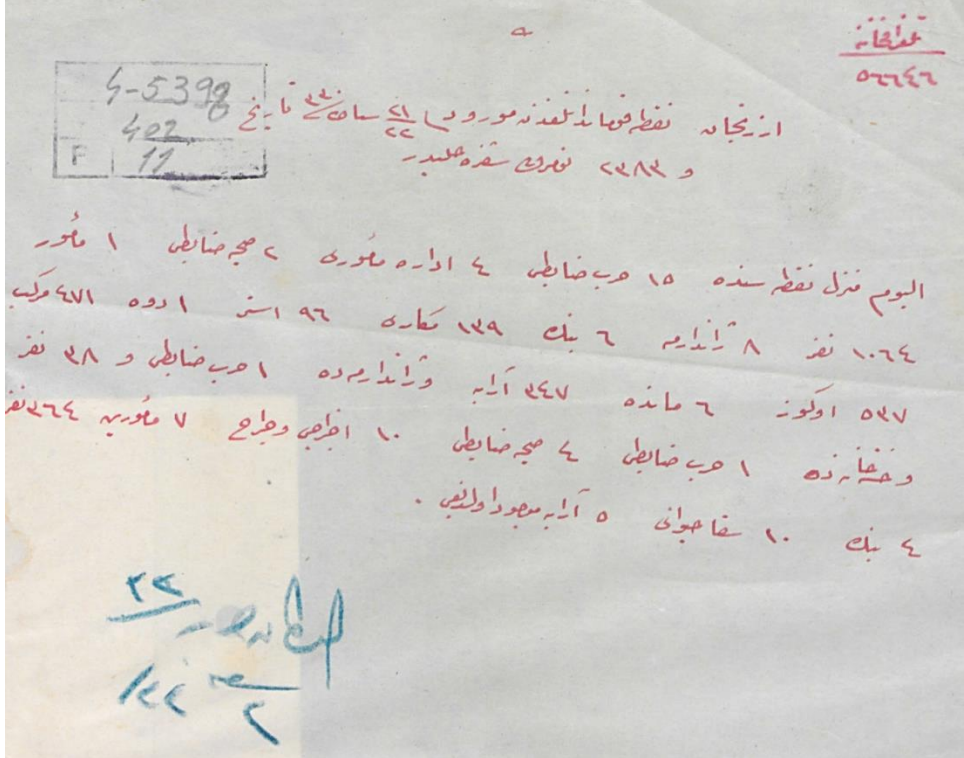 تلغرافخانه
٥٦٦٤٦
4-5398
402
F 11
ارزنجان نقطه قومانداننلغندن مورود ٢١/٢٢ نيسان ٣٣٠ تاريخ
و ٢٣٨٣ نومرولى شفره حليدر
اليوم منزل نقطه سنده ١٥ حرب ضابطى ٤ اداره مأمورى ٢ صحيه ضابطى ١ مأمور
١٠٦٤ نفر ٨ ژاندارمه ٦ بنك ١٣٩ مكارى ٩٦ استر ١ دوه ٤٧١ مركب
٥٣٧ اوكوز ٦ مانده ٣٤٧ آرابه وژاندارمه ده ١ حرب ضابطى و ٣٨ نفر
وخسته خانه ده ١ حرب ضابطى ٤ صحيه ضابطى ١٠ اجزاجى وجراح ٧ مأمورين ٣٦٤ نفر
٤ بنك ١٠ سقا حيوانى ٥ آرابه موجود اولديغى .
٢٣
٢